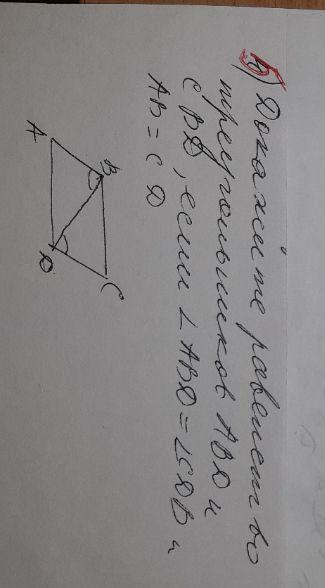 б) Докажите равенство
треугольников ABD и
CBD, если ∠ABD = ∠CDB и
AB = CD
B
C
A
D